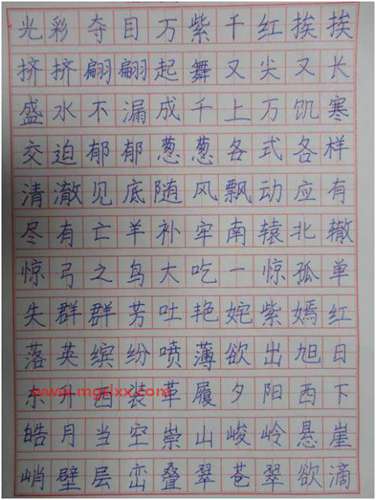 光彩夺目万紫千红挨挨
挤挤翩翩起舞又尖又长
盛水不漏成千上万饥寒
交迫郁郁葱葱各式各样
清澈见底随风飘动应有
尽有亡羊补牢南辕北辙
惊弓之鸟大吃一惊孤单
失群群芳吐艳姹紫嫣红
落英缤纷喷薄欲出旭日
东升西装革履夕阳西下
皓月当空崇山峻岭悬崖
峭壁层峦叠翠苍翠欲滴
www.mgrlxx.com